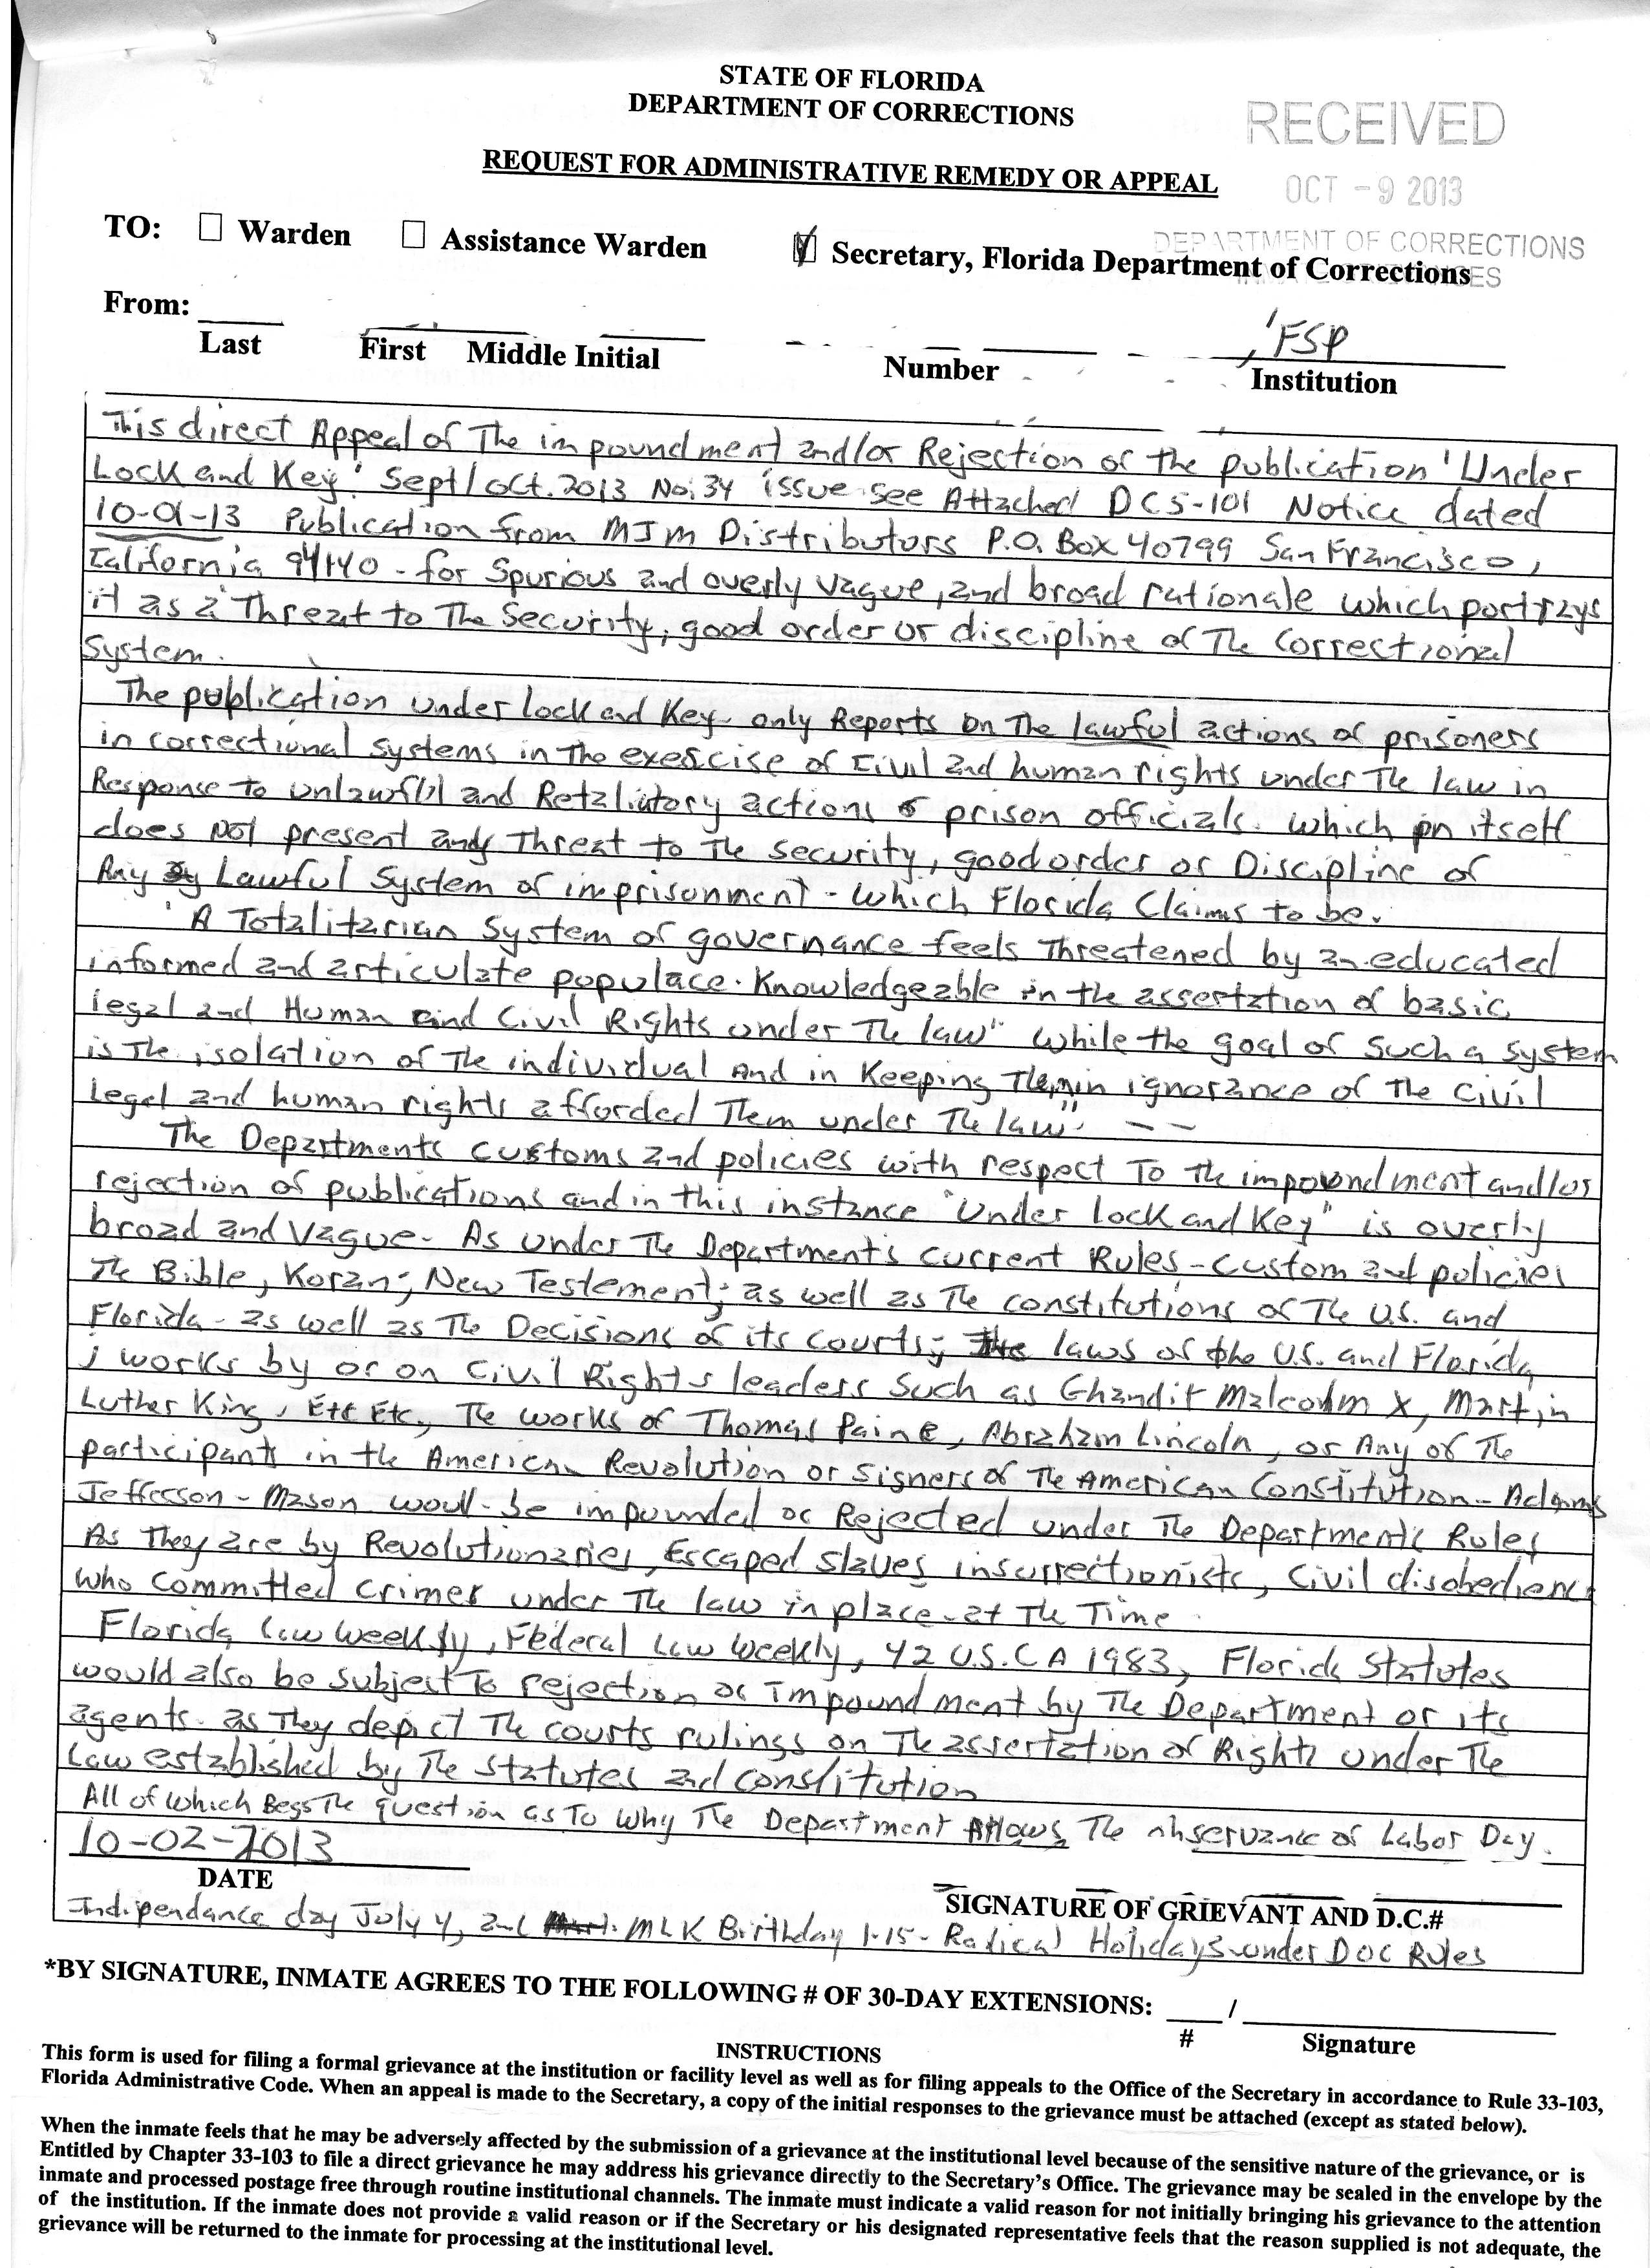 STATE OF FLORIDA
DEPARTMENT OF CORRECTIONS
RECEIVED
REQUEST FOR ADMINISTRATIVE REMEDY OR APPEAL
OCT -9 2013
TO: Warden Assistance Warden Secretary, Florida Department of Corrections
DEPARTMENT OF CORRECTIONS
From:
FSP
Last First Middle Initial Number Institution
This direct Appeal of The impoundment and/or Rejection of the publication 'Under
Lock and Key' Sept/Oct. 2013 No. 34 issue see Attached DC5-101 Notice dated
10-01-13 Publication from MIM Distributors P.O. Box 40799 San Francisco,
California 94140 - for Spurious and overly vague, and broad rationale which portrays
it as a "Threat to The Security, good order or discipline of The Correctional
System.
The publication under lock and Key- only Reports on The lawful actions of prisoners
in correctional systems in the exercise of Civil and human rights under The law in
Response to unlawful and Retaliatory actions of prison officials. which in itself
does not present any Threat to The security, good order or Discipline of
Any Lawful System of imprisonment - which Florida Claims to be.
"A Totalitarian System of governance feels Threatened by an educated
informed and articulate populace. Knowledgeable in the assertation of basic
legal and Human and Civil Rights under The law" while the goal of Such a system
is The isolation of The individual And in Keeping Them in ignorance of The Civil
Legal and human rights afforded Them under The law". — —
The Departments customs and policies with respect To the impoundment and/or
rejection of publications and in this instance "Under lock and Key" is overly
broad and Vague- As under The Department's current Rules - custom and policies
The Bible, Koran, New Testement; as well as The constitutions of The U.S. and
Florida - as well as The Decisions of its courts; The laws of the U.S. and Florida
; works by or on Civil Rights leaders Such as Ghandi Malcolm X, Martin
Luther King, Etc Etc, The works of Thomas Paine, Abraham Lincoln, or Any of The
participants in the American Revolution or Signers of The American Constitution - Adams
Jefferson - Mason would be impounded or Rejected under The Department's Rules
As They are by Revolutionaries, Escaped slaves insurrectionists, Civil disobedience
who committed crimes under The law in place - at The Time.
Florida law weekly, Federal Law Weekly, 42 U.S.C A 1983, Florida Statutes
would also be subject To rejection or Impoundment by The Department or its
agents. as They depict The courts rulings on The assertation of Rights under The
Law established by The Statutes and constitution
All of which Begs The question as To Why The Department Allows The observance of Labor Day.
10-02-2013
DATE SIGNATURE OF GRIEVANT AND D.C.#
Independance day July 4, and MLK Birthday 1-15 - Radical Holidays under DOC Rules
*BY SIGNATURE, INMATE AGREES TO THE FOLLOWING # OF 30-DAY EXTENSIONS: /
# Signature
INSTRUCTIONS
This form is used for filing a formal grievance at the institution or facility level as well as for filing appeals to the Office of the Secretary in accordance to Rule 33-103,
Florida Administrative Code. When an appeal is made to the Secretary, a copy of the initial responses to the grievance must be attached (except as stated below).
When the inmate feels that he may be adversely affected by the submission of a grievance at the institutional level because of the sensitive nature of the grievance, or is
Entitled by Chapter 33-103 to file a direct grievance he may address his grievance directly to the Secretary's Office. The grievance may be sealed in the envelope by the
inmate and processed postage free through routine institutional channels. The inmate must indicate a valid reason for not initially bringing his grievance to the attention
of the institution. If the inmate does not provide a valid reason or if the Secretary or his designated representative feels that the reason supplied is not adequate, the
grievance will be returned to the inmate for processing at the institutional level.